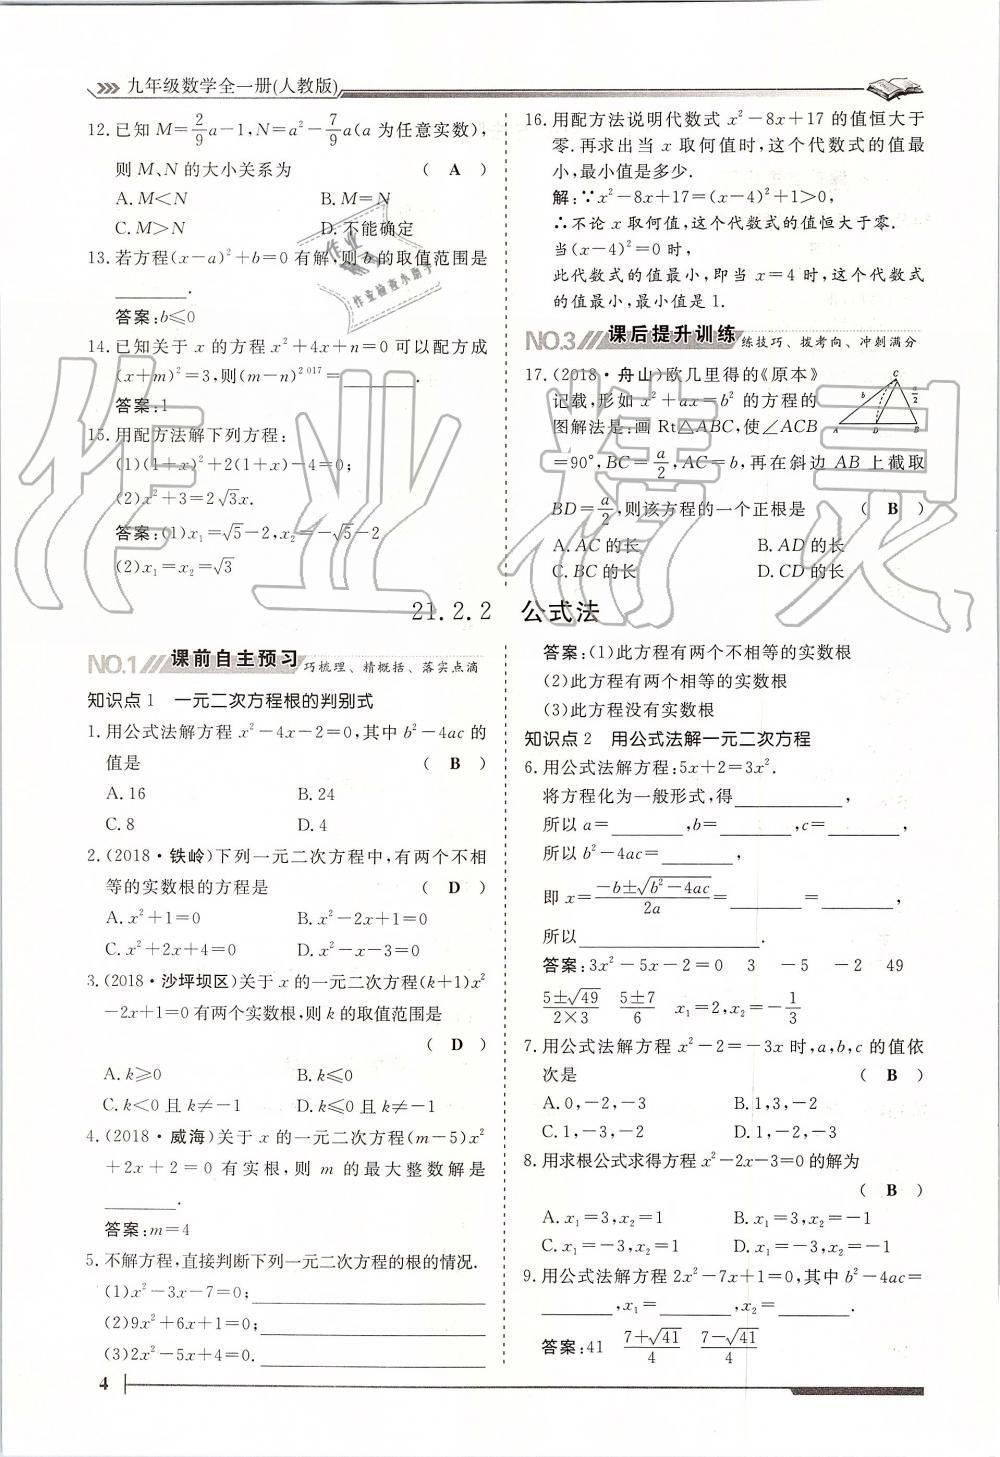 九年级数学全一册(人教版)
12.已知M=2/9a-1,N=a²-7/9a(a为任意实数),
则M、N的大小关系为 ( A )
A.M<N B.M=N
C.M>N D.不能确定
13.若方程(x-a)²+b=0有解,则b的取值范围是
________.
答案:b≤0
14.已知关于x的方程x²+4x+n=0可以配方成
(x+m)²=3,则(m-n)²⁰¹⁷=________.
答案:1
15.用配方法解下列方程:
(1)(1+x)²+2(1+x)-4=0;
(2)x²+3=2√3x.
答案:(1)x₁=√5-2,x₂=-√5-2
(2)x₁=x₂=√3
16.用配方法说明代数式x²-8x+17的值恒大于
零.再求出当x取何值时,这个代数式的值最
小,最小值是多少.
解:∵x²-8x+17=(x-4)²+1>0,
∴不论x取何值,这个代数式的值恒大于零.
当(x-4)²=0时,
此代数式的值最小,即当x=4时,这个代数式
的值最小,最小值是1.
NO.3 课后提升训练 练技巧、拨考向、冲刺满分
17.(2018·舟山)欧几里得的《原本》
记载,形如x²+ax=b²的方程的
图解法是:画Rt△ABC,使∠ACB
=90°,BC=a/2,AC=b,再在斜边AB上截取
BD=a/2,则该方程的一个正根是 ( B )
A.AC的长 B.AD的长
C.BC的长 D.CD的长
C
b
a/2
A D B
21.2.2 公式法
NO.1 课前自主预习 巧梳理、精概括、落实点滴
知识点1 一元二次方程根的判别式
1.用公式法解方程x²-4x-2=0,其中b²-4ac的
值是 ( B )
A.16 B.24
C.8 D.4
2.(2018·铁岭)下列一元二次方程中,有两个不相
等的实数根的方程是 ( D )
A.x²+1=0 B.x²-2x+1=0
C.x²+2x+4=0 D.x²-x-3=0
3.(2018·沙坪坝区)关于x的一元二次方程(k+1)x²
-2x+1=0有两个实数根,则k的取值范围是
( D )
A.k≥0 B.k≤0
C.k<0且k≠-1 D.k≤0且k≠-1
4.(2018·威海)关于x的一元二次方程(m-5)x²
+2x+2=0有实根,则m的最大整数解是
________.
答案:m=4
5.不解方程,直接判断下列一元二次方程的根的情况.
(1)x²-3x-7=0;________
(2)9x²+6x+1=0;________
(3)2x²-5x+4=0.________
答案:(1)此方程有两个不相等的实数根
(2)此方程有两个相等的实数根
(3)此方程没有实数根
知识点2 用公式法解一元二次方程
6.用公式法解方程:5x+2=3x².
将方程化为一般形式,得________,
所以a=________,b=________,c=________,
所以b²-4ac=________,
即x=(-b±√(b²-4ac))/2a=________=________,
所以________.
答案:3x²-5x-2=0 3 -5 -2 49
(5±√49)/(2×3) (5±7)/6 x₁=2,x₂=-1/3
7.用公式法解方程x²-2=-3x时,a,b,c的值依
次是 ( B )
A.0,-2,-3 B.1,3,-2
C.1,-3,-2 D.-1,-2,-3
8.用求根公式求得方程x²-2x-3=0的解为
( B )
A.x₁=3,x₂=1 B.x₁=3,x₂=-1
C.x₁=-3,x₂=1 D.x₁=-3,x₂=-1
9.用公式法解方程2x²-7x+1=0,其中b²-4ac=
________,x₁=________,x₂=________.
答案:41 (7+√41)/4 (7-√41)/4
4
作业精灵
作业
作业检查小助手